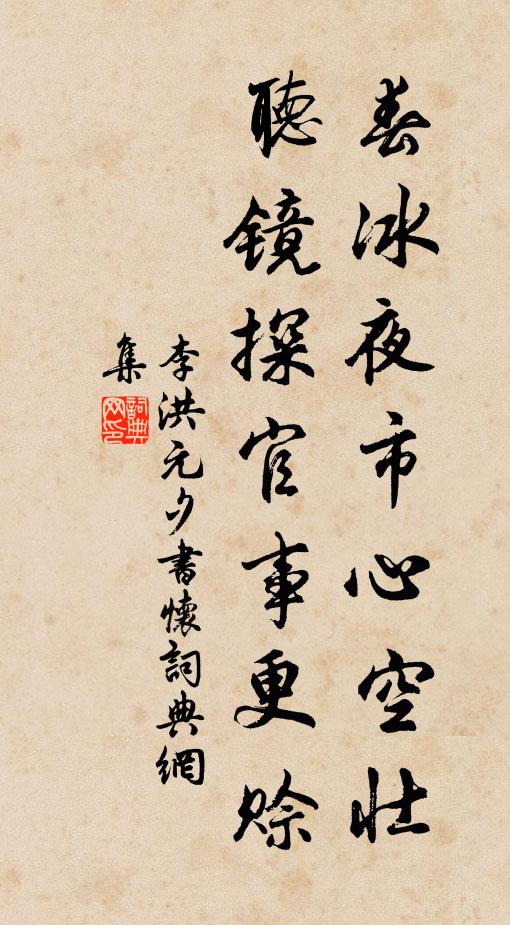 春冰夜市心空壮
聽鏡探官事更賒
李洪元夕書懷詞典網
集
詞典
网印